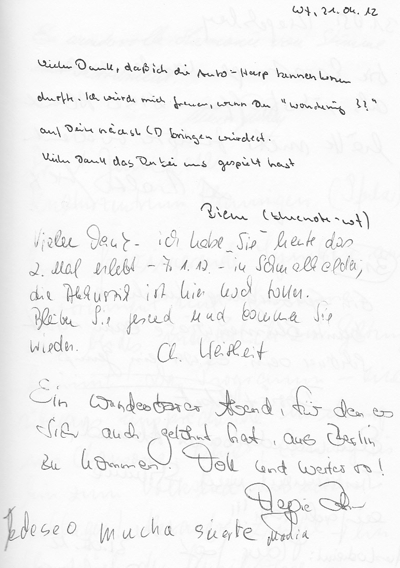 WT, 21.04.12
Vielen Dank, daß ich die Auto-Harp kennenlernen
durfte. Ich würde mich freuen, wenn Du "wondering
auf Deine nächste CD bringen würdest.
Vielen Dank das Du bei uns gespielt hast
(bluenote-wt)
Vielen Dank - ich habe "Sie" heute das
2. Mal erlebt - 7.1.12 - in Schmalkalden,
die Akustik ist hier wohl toller.
Bleiben Sie gesund und kommen Sie
wieder.
Ein wunderbarer Abend, für den es
sich auch gelohnt hat, aus Berlin
zu kommen. Toll und weiter so!
te deseo mucha suerte